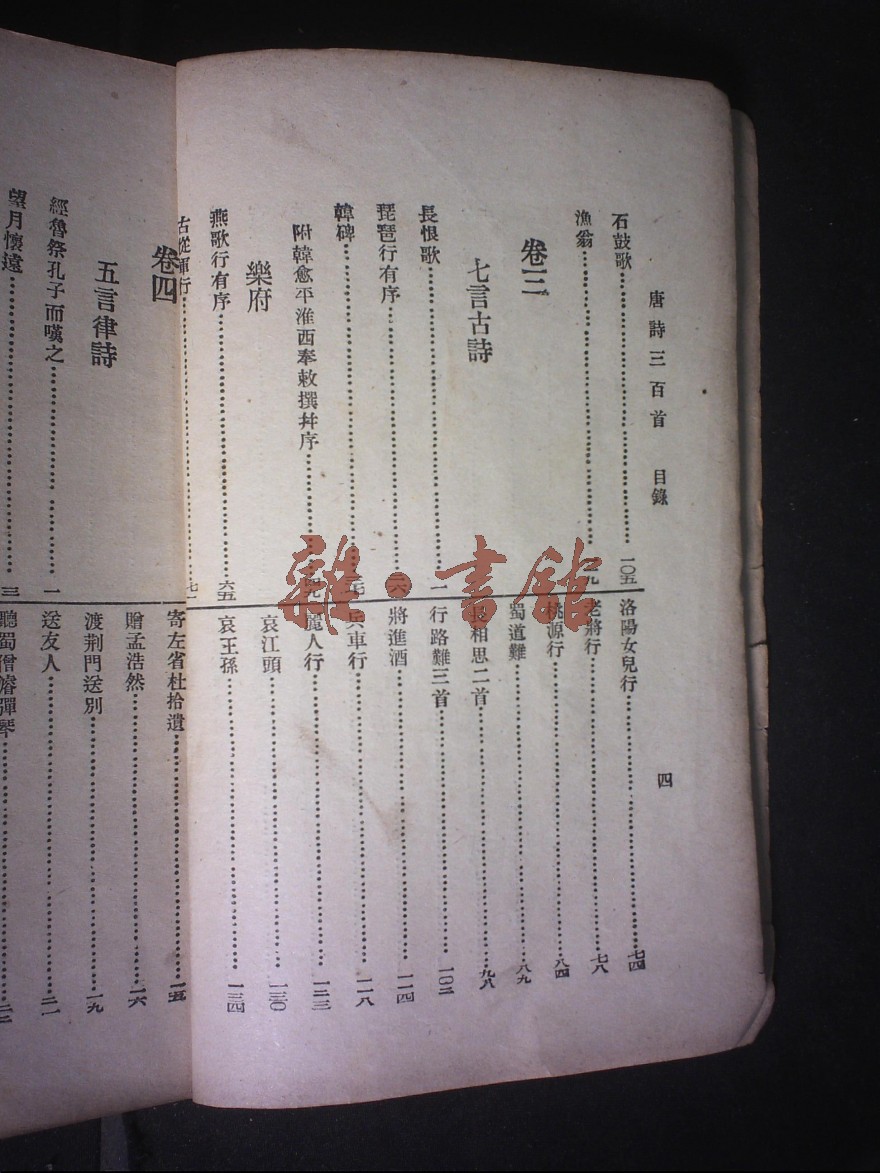 唐詩三百首 目錄
四
石鼓歌 一〇五
漁翁
卷三
七言古詩
長恨歌 一
琵琶行有序 二六
韓碑
附韓愈平淮西奉敕撰幷序
樂府
燕歌行有序 六五
古從軍行 七
洛陽女兒行 七四
老將行 七八
桃源行 八四
蜀道難 八九
長相思二首 九八
行路難三首 一〇二
將進酒 一一四
兵車行 一一八
麗人行 一二三
哀江頭 一三〇
哀王孫 一三四
卷四
五言律詩
經魯祭孔子而嘆之 一
望月懷遠 三
寄左省杜拾遺 一五
贈孟浩然 一六
渡荆門送別 一九
送友人 二一
聽蜀僧濬彈琴 二二
雜·書館